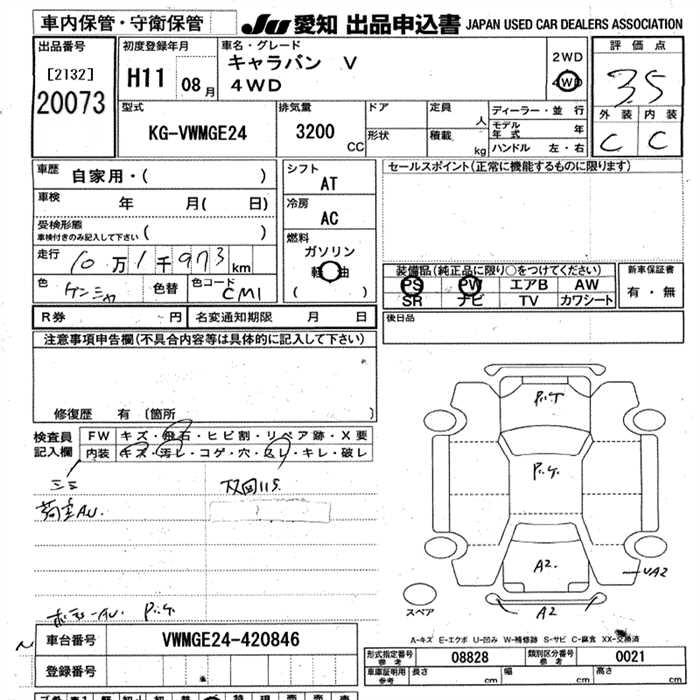 車内保管・守衛保管
JU 愛知 出品申込書 JAPAN USED CAR DEALERS ASSOCIATION
出品番号
[2132]
20073
初度登録年月
H11 08月
車名・グレード
キャラバン V
4WD
2WD
4WD
評価点
3.5
外装 内装
C C
型式
KG-VWMGE24
排気量
3200 CC
ドア
形状
定員 人
積載 kg
ディーラー・並行
モデル年式 年
ハンドル 左・右
車歴 自家用・( )
車検 年 月( 日)
受検形態
車検付きのみ記入して下さい ( )
走行 10万1千973km
色 色替 色コード CM1
シフト
AT
冷房
AC
燃料
ガソリン
軽油
( )
セールスポイント(正常に機能するものに限ります)
装備品(純正品に限り○をつけてください)
PS PW エアB AW
SR ナビ TV カワシート
新車保証書
有・無
R券 円 名変通知期限 月 日
後日品
注意事項申告欄(不具合内容等は具体的に記入して下さい)
修復歴 有 〔箇所 〕
検査員記入欄
FW キズ・飛石・ヒビ割・リペア跡・X要
内装 キズ・汚レ・コゲ・穴・スレ・キレ・破レ
A2
A2
A2
スペア
A-キズ E-エクボ U-凹み W-補修跡 S-サビ C-腐食 XX-交換済
車台番号 VWMGE24-420846
登録番号
形式指定番号 参考 08828 類別区分番号 参考 0021
車庫証明用 参考 長さ cm 幅 cm 高さ cm